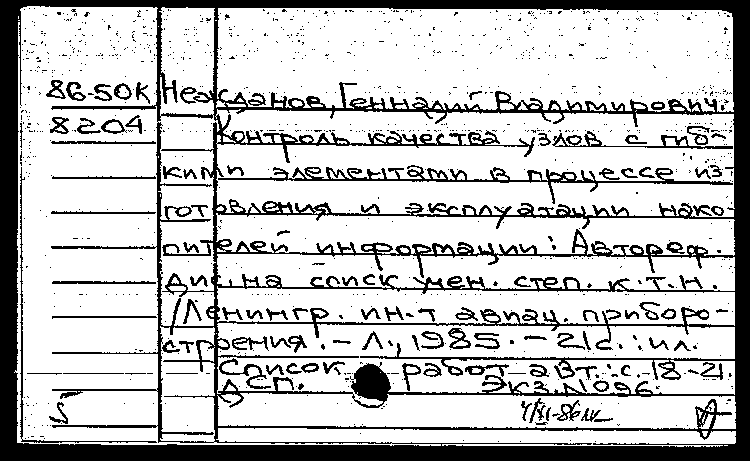 86-50К Нежданов, Геннадий Владимирович.
8204 Контроль качества узлов с гиб-
кими элементами в процессе из-
готовления и эксплуатации нако-
пителей информации: Автореф.
дис. на соиск учен. степ. к.т.н.
/Ленингр. ин-т авиац. приборо-
строения. – Л., 1985. – 21с.: ил.
Список работ авт.: с. 18-21.
ДСП. Экз. N096.